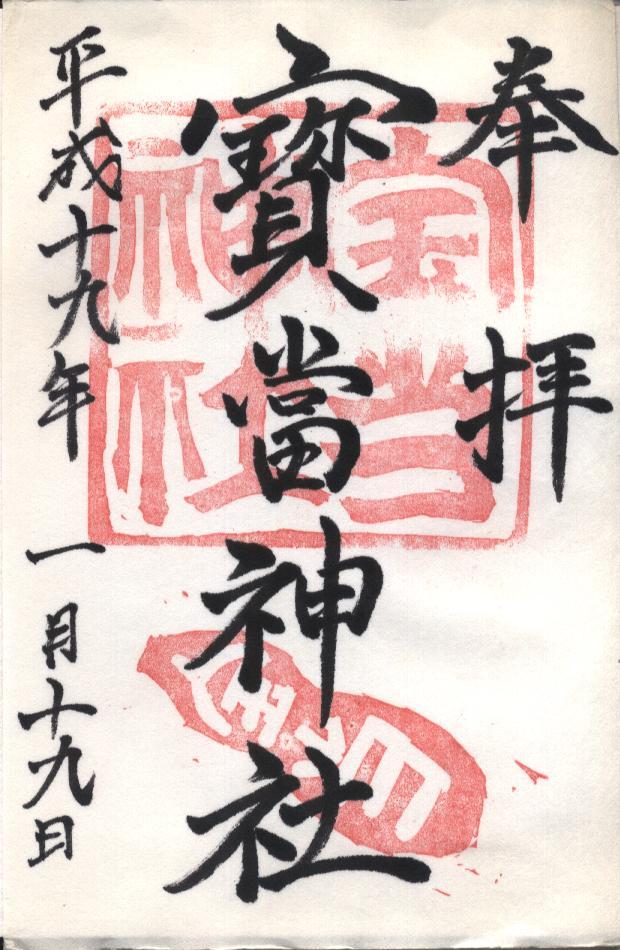 奉拝
寳當神社
平成十九年 一月十九日
宝当
神社
宝当